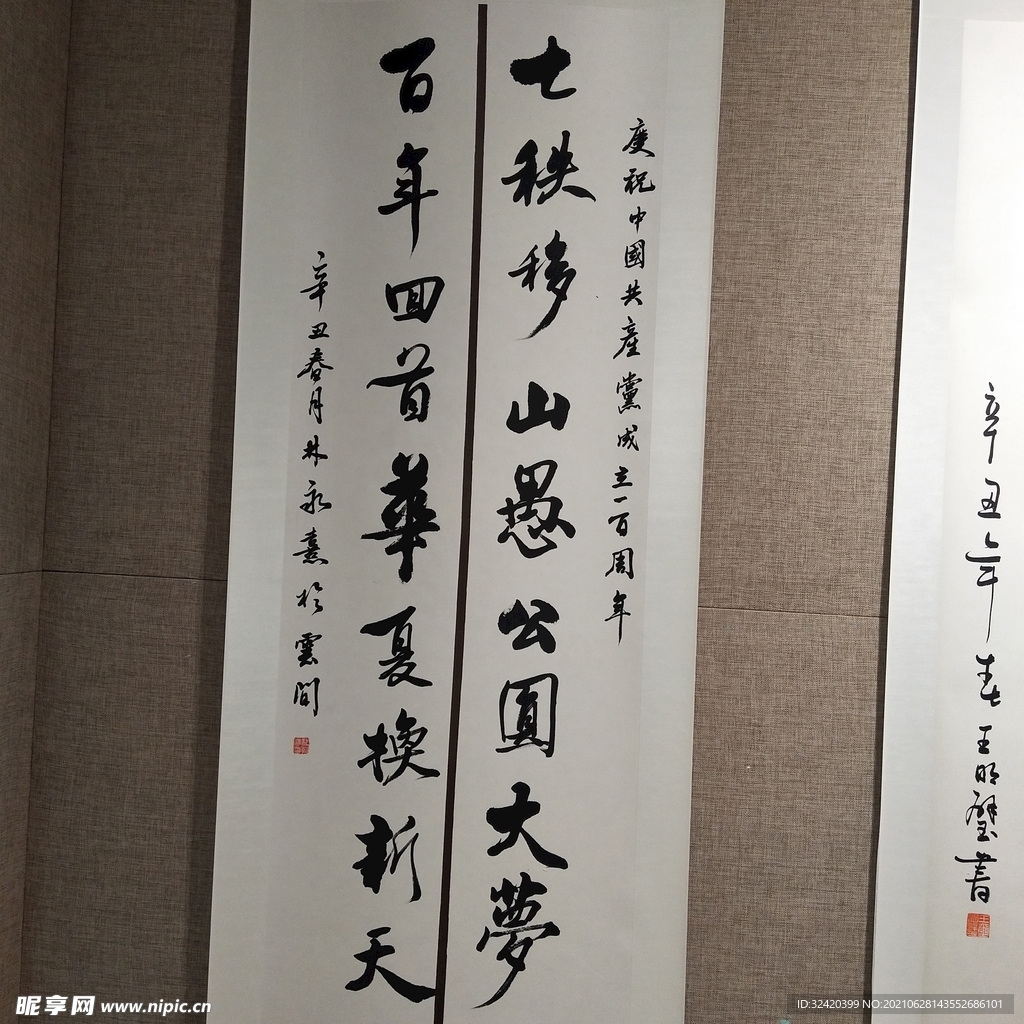 慶祝中國共產黨成立一百周年
七秩移山愚公圓大夢
百年回首華夏換新天
辛丑春月林永熹於雲間
辛丑年春王明璧書
昵享网 www.nipic.cn
ID:32420399 NO:20210628143552686101